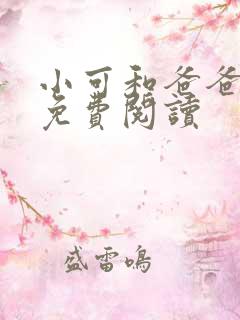 小可和爸爸
免費閱讀
盛雷鳴